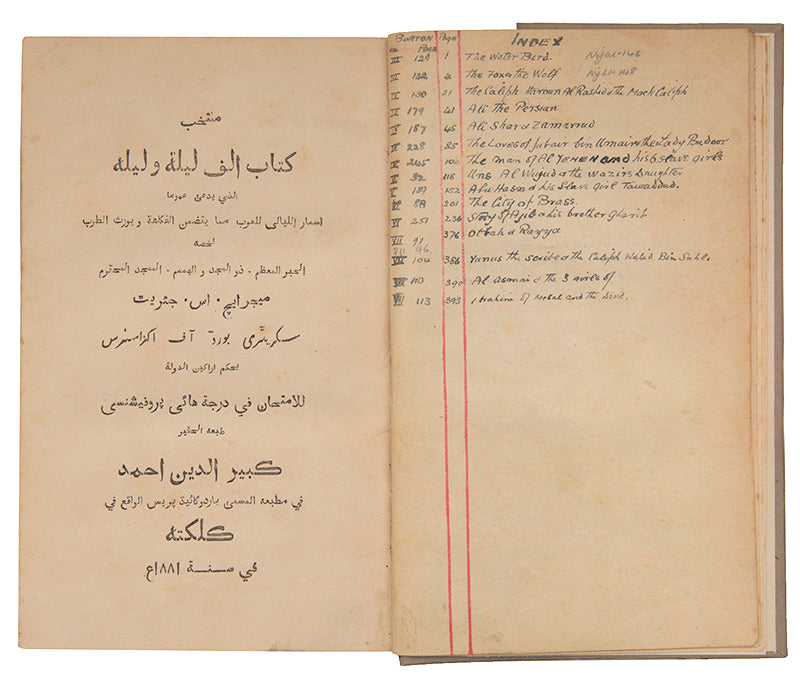 منتخب
كتاب الف ليلة و ليله
الذي يدعى عموما
اسمار الليالي للعرب مما يتضمن الفكاهة و يورث الطرب
لخصه
الحبر المعظم - ذو المجد و الهمم - المسجد المحترم
ميجر ايچ . اس . جئريت
سكريٹري بورڈ آف اكزامنرس
بحكم اراكين الدولة
للامتحان في درجة هائى پروفيشنسى
طبعه الحقير
كبير الدين احمد
في مطبعه المسمى باردوگائيڈ پريس الواقع في
كلكته
في سنة ١٨٨١ع
BURTON Page INDEX
Page
III 125 1 The Water Bird.
III 132 6 The Fox & the Wolf
IV 130 21 The Caliph Haroun Al Rashid & the Mock Caliph
IV 179 41 Ali the Persian
IV 187 45 Ali Shar & Zamarrud
IV 228 85 The Loves of Jubair bin Umair & the Lady Budoor
IV 245 100 The Man of AL YEMEN and his 6 slave girls
V 32 115 Uns Al Wujud & the wazirs Daughter
V 189 152 Abu Hasan & his Slave girl Tawaddud.
VI 83 201 The City of Brass.
VI 257 236 Story of Ajib & his brother Gharib
VII 91 376 Otbah & Rayya
VII 96
VII 104 386 Yunus the scribe & the Caliph Walid Bin Sahl.
VII 110 390 Al Asmai & the 3 girls of
VII 113 393 Ibrahim of Mosul and the Devil.